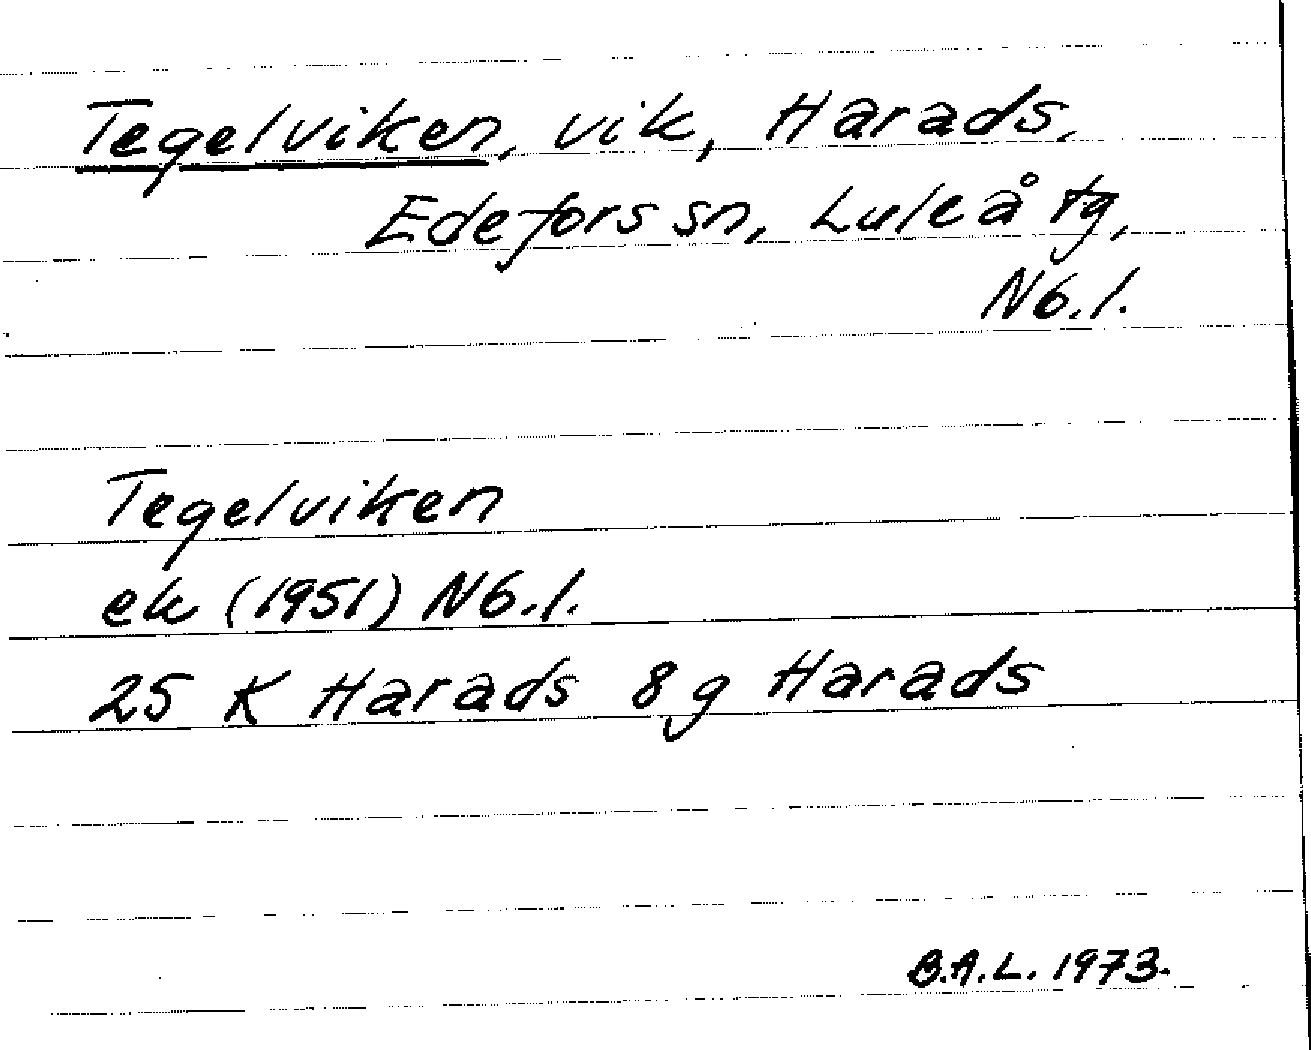 Tegelviken, vik, Harads,
Edefors sn, Luleå tg,
Nb.l.
Tegelviken
ek (1951) Nb.l.
25 K Harads 8g Harads
B.A.L. 1973.